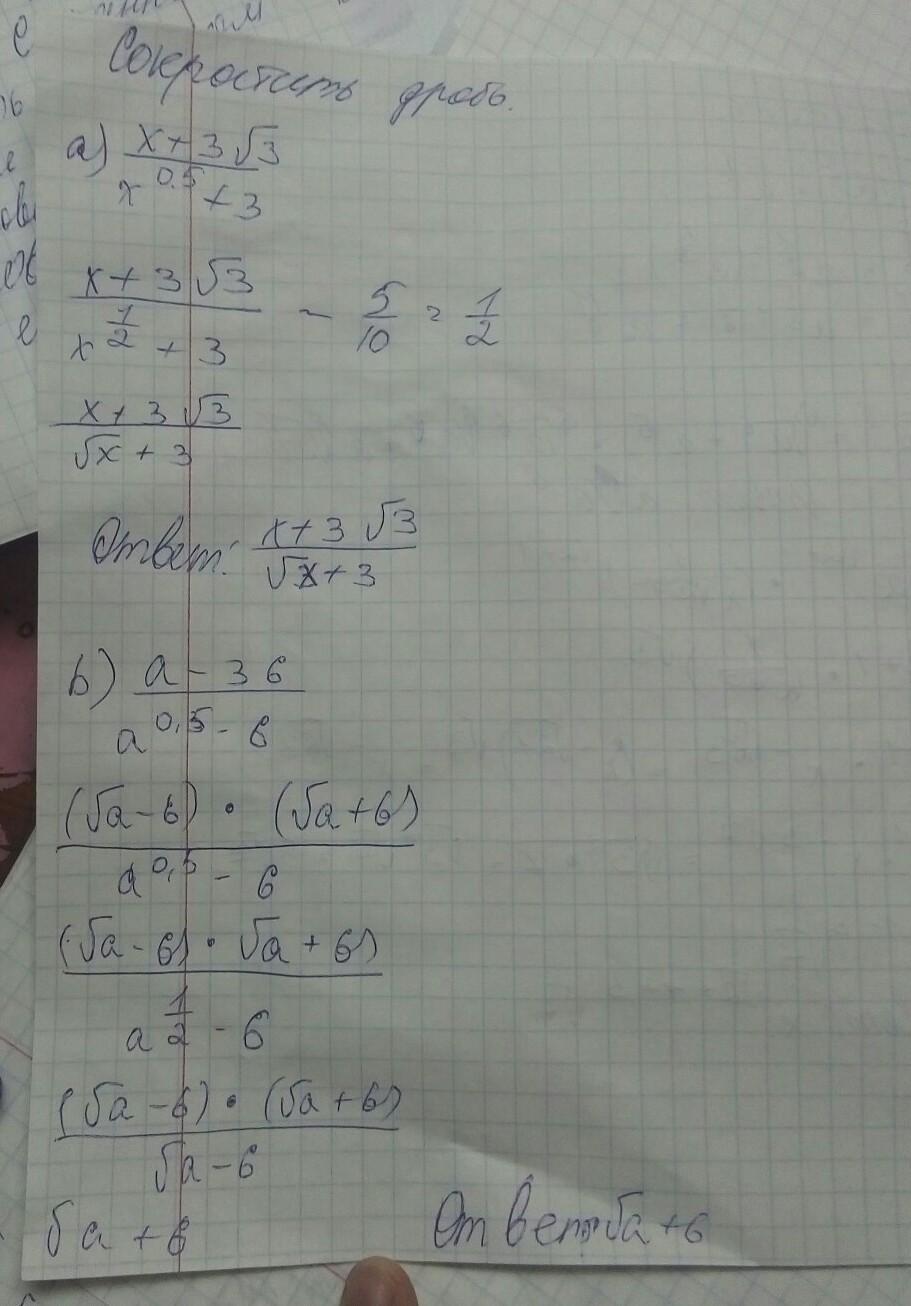 Сокростить дробь.
а) (x + 3√3)/(x^0,5 + 3)
(x + 3√3)/(x^(1/2) + 3) - 5/10 = 1/2
(x + 3√3)/(√x + 3)
Ответ: (x + 3√3)/(√x + 3)
b) (a - 36)/(a^0,5 - 6)
((√a - 6) · (√a + 6))/(a^0,5 - 6)
((√a - 6) · √a + 6))/(a^(1/2) - 6)
((√a - 6) · (√a + 6))/(√a - 6)
√a + 6
Ответ: √a + 6